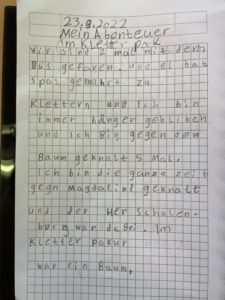 23.9.2022
Mein Abenteuer
im Kletter pak
Wir sind 2 mal mit dem
Bus gefaren und es hab
spas gemahrt zu
Klettern und Ich bin
immer hänger gebliben
und Ich Bin gegen den
Baum geknalt 5 Mal.
Ich bin die ganze zeit
gegn Magdalini geknalt
und der Her Schulen-
borg war dabei. Im
Kletter Pakur
war ein Baum,